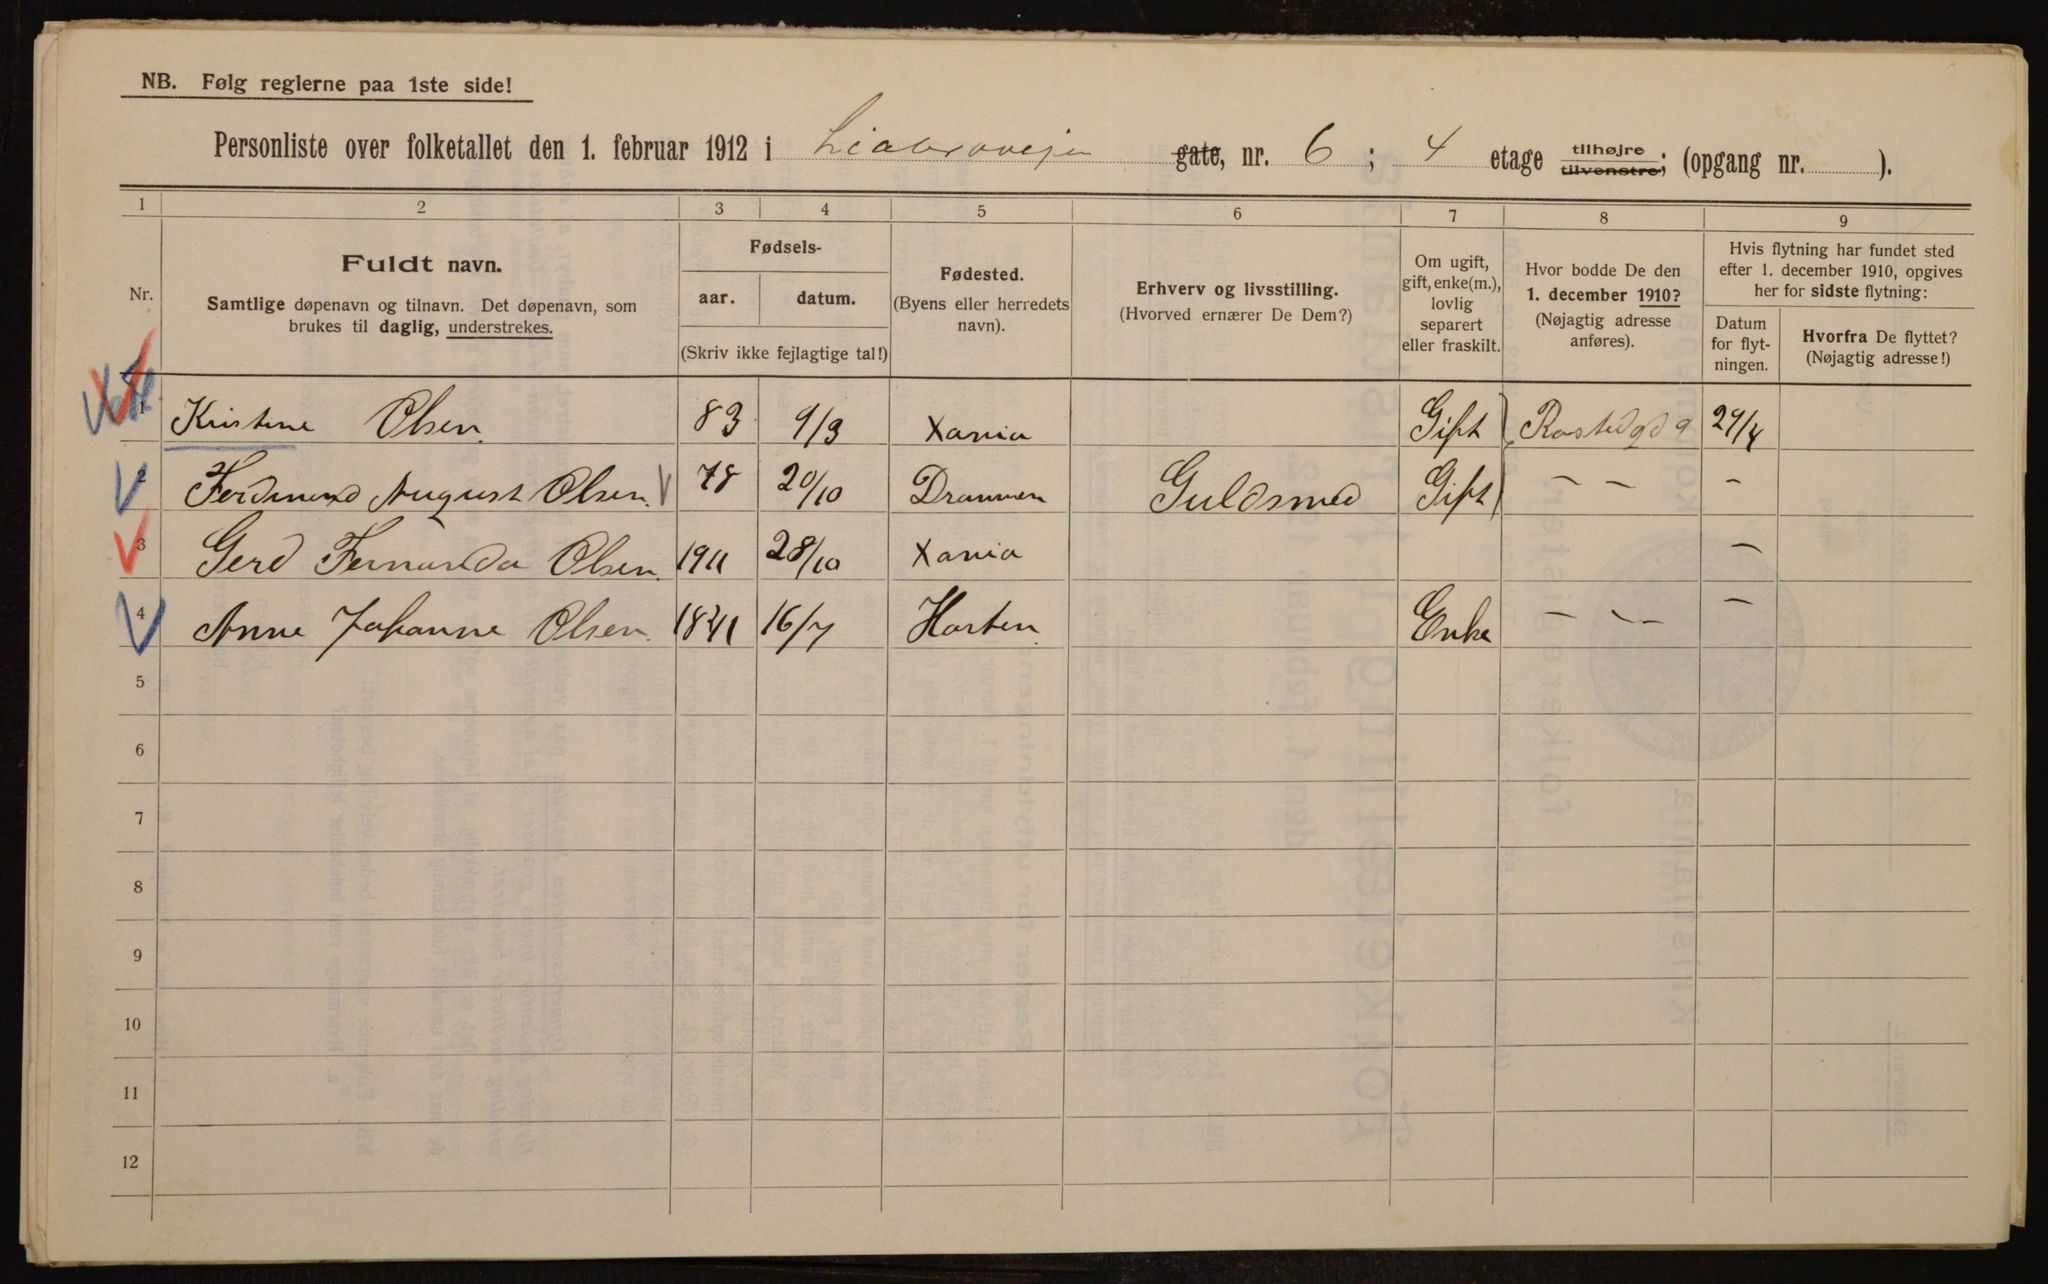 NB. Følg reglerne paa 1ste side!
Personliste over folketallet den 1. februar 1912 i Liabroveien gate, nr. 6 ; 4 etage tilhøjre tilvenstre; (opgang nr. ).
1 2 3 4 5 6 7 8 9
Nr.
Fuldt navn.
Samtlige døpenavn og tilnavn. Det døpenavn, som
brukes til daglig, understrekes.
Fødsels-
aar. datum.
(Skriv ikke fejlagtige tal!)
Fødested.
(Byens eller herredets
navn).
Erhverv og livsstilling.
(Hvorved ernærer De Dem?)
Om ugift,
gift, enke(m.),
lovlig
separert
eller fraskilt.
Hvor bodde De den
1. december 1910?
(Nøjagtig adresse
anføres).
Hvis flytning har fundet sted
efter 1. december 1910, opgives
her for sidste flytning:
Datum
for flyt-
ningen.
Hvorfra De flyttet?
(Nøjagtig adresse!)
1 Kristine Olsen 83 9/3 Xania Gift 29/4
2 Ferdinand August Olsen 78 20/10 Drammen Guldsmed Gift — — —
3 Gerd Fernanda Olsen 1911 28/10 Xania —
4 Anne Johanne Olsen 1841 16/7 Horten Enke — — —
5
6
7
8
9
10
11
12